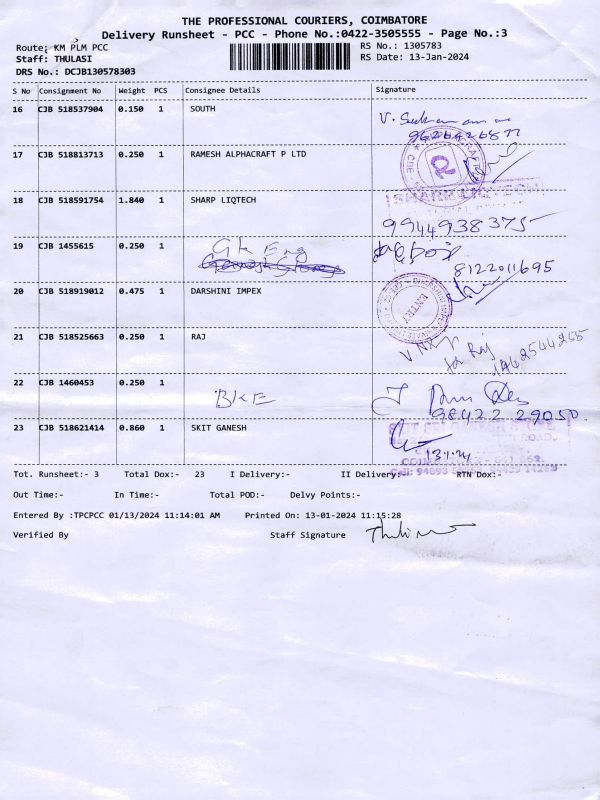 THE PROFESSIONAL COURIERS, COIMBATORE
Delivery Runsheet - PCC - Phone No.:0422-3505555 - Page No.:3
Route: KM PLM PCC RS No.: 1305783
Staff: THULASI RS Date: 13-Jan-2024
DRS No.: DCJB130578303
S No Consignment No Weight PCS Consignee Details Signature
16 CJB 518537904 0.150 1 SOUTH
17 CJB 518813713 0.250 1 RAMESH ALPHACRAFT P LTD
18 CJB 518591754 1.840 1 SHARP LIQTECH
9944938375
19 CJB 1455615 0.250 1 Gk Eng
8122011695
20 CJB 518919012 0.475 1 DARSHINI IMPEX
ENTRY
21 CJB 518525663 0.250 1 RAJ
for Raj
22 CJB 1460453 0.250 1 BKE
98422 29050
23 CJB 518621414 0.860 1 SKIT GANESH
13.1.24
Tot. Runsheet:- 3 Total Dox:- 23 I Delivery:- II Delivery:- RTN Dox:-
Out Time:- In Time:- Total POD:- Delvy Points:-
Entered By :TPCPCC 01/13/2024 11:14:01 AM Printed On: 13-01-2024 11:15:28
Verified By Staff Signature